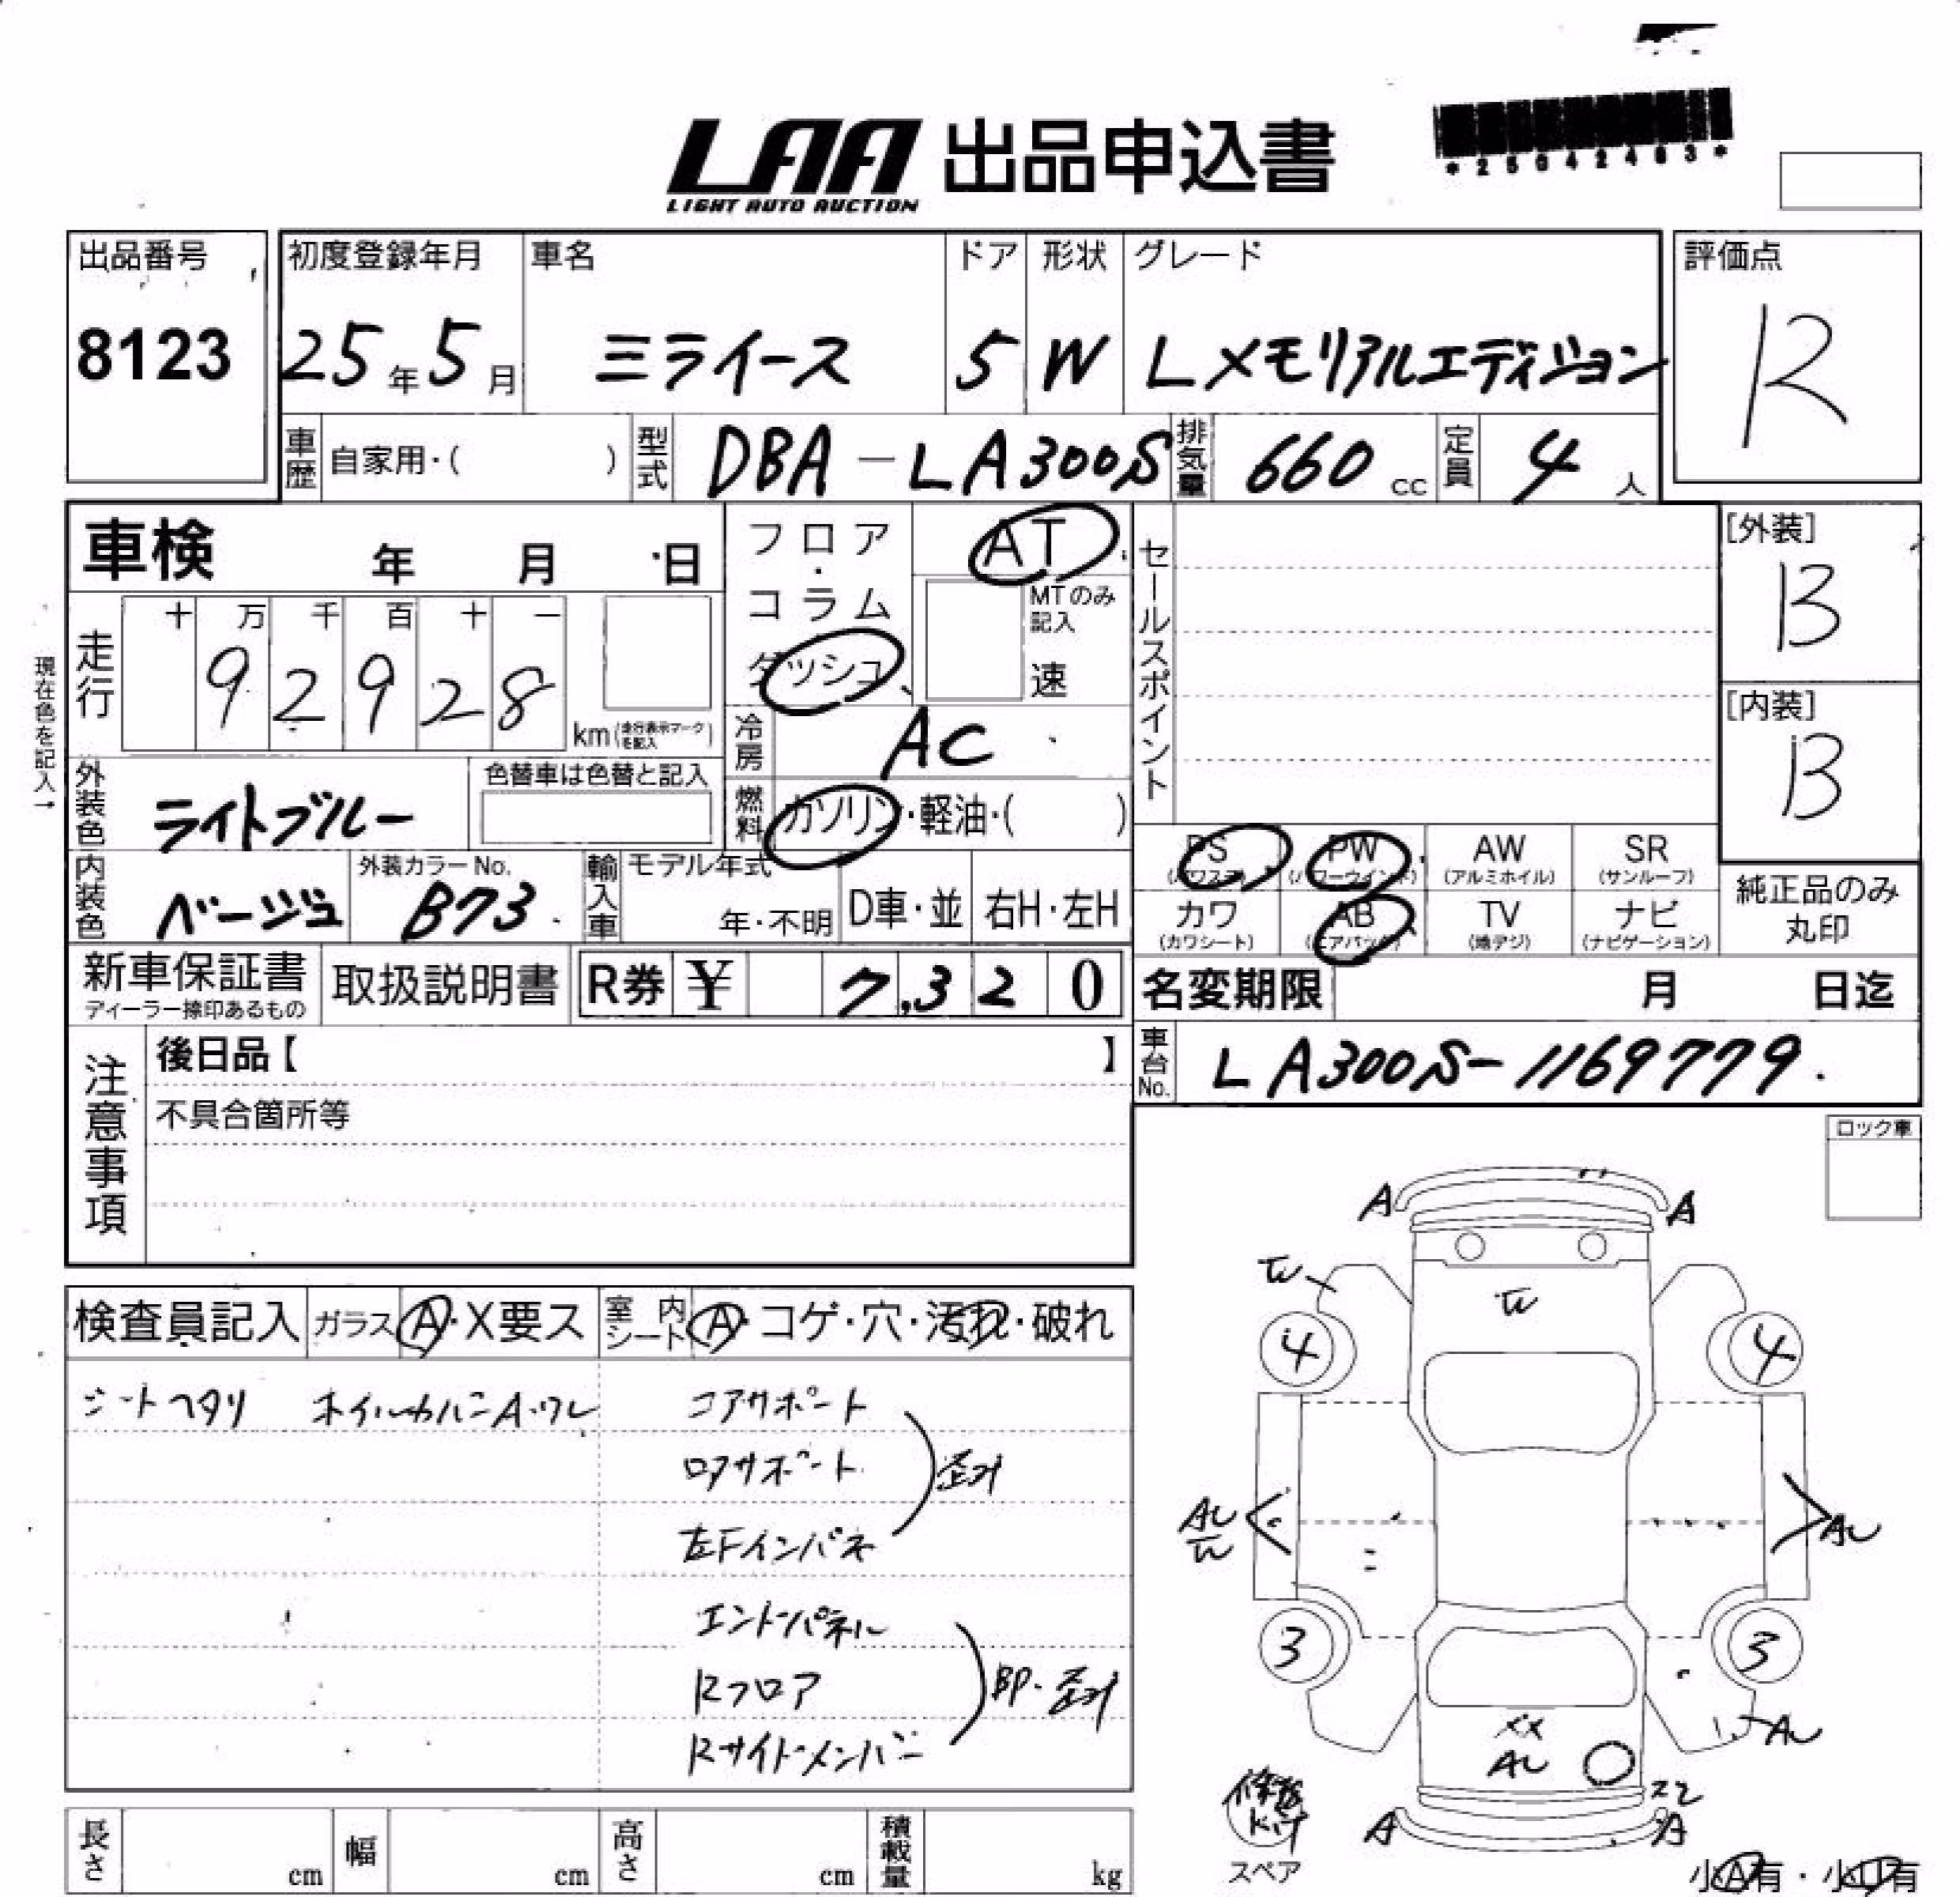 LAA 出品申込書
LIGHT AUTO AUCTION
*25042483*
出品番号
8123
初度登録年月
25年5月
車名
ミライース
ドア
5
形状
W
グレード
Lメモリアルエディション
評価点
R
車歴 自家用・( )
型式 DBA-LA300S
排気量 660 cc
定員 4 人
車検 年 月 日
フロア・コラム
ダッシュ
AT
MTのみ記入
速
セールスポイント
[外装]
B
[内装]
B
現在色を記入→
走行
十 万 千 百 十 一
9 2 9 2 8
km(走行表示マークを記入)
冷房 AC
燃料 ガソリン・軽油・( )
外装色 ライトブルー
色替車は色替と記入
内装色 ベージュ
外装カラーNo.
B73
輸入車
モデル年式
年・不明
D車・並
右H・左H
PS
(パワステ)
PW
(パワーウインド)
AW
(アルミホイル)
SR
(サンルーフ)
カワ
(カワシート)
AB
(エアバッグ)
TV
(地デジ)
ナビ
(ナビゲーション)
純正品のみ
丸印
新車保証書
ディーラー捺印あるもの
取扱説明書
R券 ¥ 7,320
名変期限 月 日迄
車台No. LA300S-1169779
注意事項
後日品【 】
不具合箇所等
ロック車
検査員記入
ガラス A・X要ス
室内シート A・コゲ・穴・汚れ・破れ
シートヘタリ ホイルカバーA・ワレ
コアサポート
ロアサポート
左Fインパネ
歪み
エンドパネル
Rフロア
Rサイドメンバー
BP・歪み
A A
4 4
AU
AU
3 3
XX
AU
AU
A A
修理
Kit
スペア
小A有・小U有
長さ cm
幅 cm
高さ cm
積載量 kg